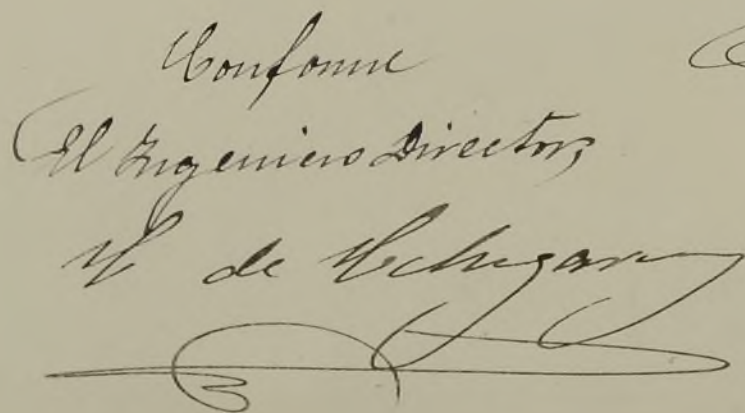 Conforme
El Ingeniero Director,
de Echegaray